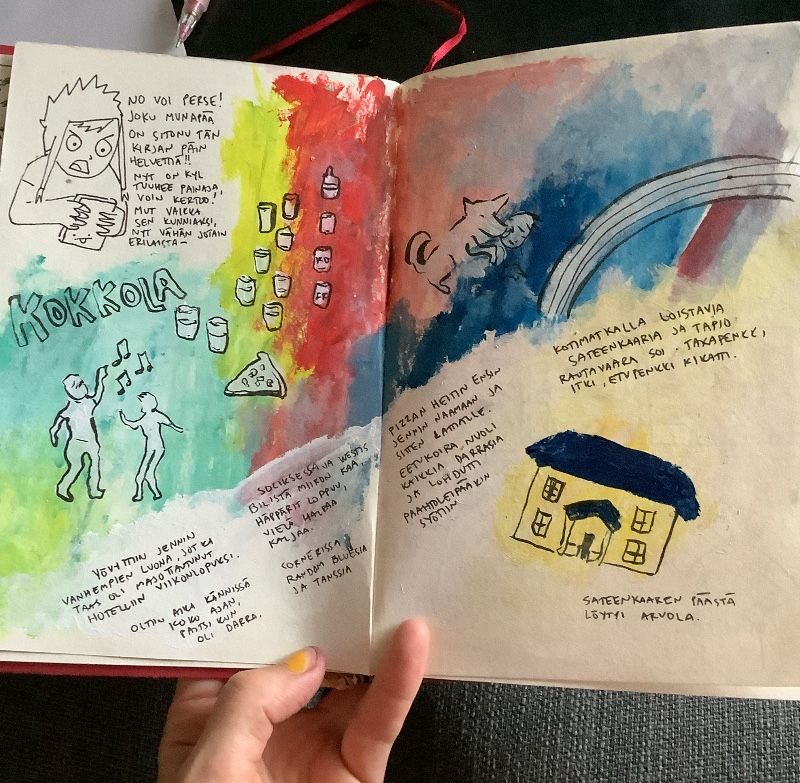 NO VOI PERSE!
JOKU MUNAPÄÄ
ON SITONU TÄN
KIRJAN PÄIN
HELVETTIÄ!!
NYT ON KYL
TUUHEE PAINAJA,
VOIN KERTOO,
MUT VAIKKA
SEN KUNNIAKSI,
NYT VÄHÄN JOTAIN
ERILAISTA –
KOKKOLA
YÖVYTTIIN JENNIN
VANHEMPIEN LUONA, JOTKA
TAAS OLI MAJOITTAUTUNUT
HOTELLIIN VIIKONLOPUKSI.
OLTIIN AIKA KÄNNISSÄ
KOKO AJAN,
PAITSI KUN
OLI DARRA.
SOCIKSESSA JA WESTIS
BILISTÄ MIIKON KAA.
HÄPPÄRIT LOPPUU,
VIELÄ HALPAA
KALJAA.
CORNERISSA
RANDOM BLUESIA
JA TANSSIA
PIZZAN HEITIN ENSIN
JENNIN NAAMAAN JA
SITTEN LATTIALLE.
EETUKOIRA NUOLI
KAIKKIA DARRASIA
JA LOHDUTTI
PAAHTOLEIPÄÄKIN
SYÖTIIN
KOTIMATKALLA LOISTAVIA
SATEENKAARIA JA TAPIO
RAUTAVAARA SOI. TAKAPENKKI
ITKI, ETUPENKKI KIKATTI.
SATEENKAAREN PÄÄSTÄ
LÖYTYI ARVOLA.